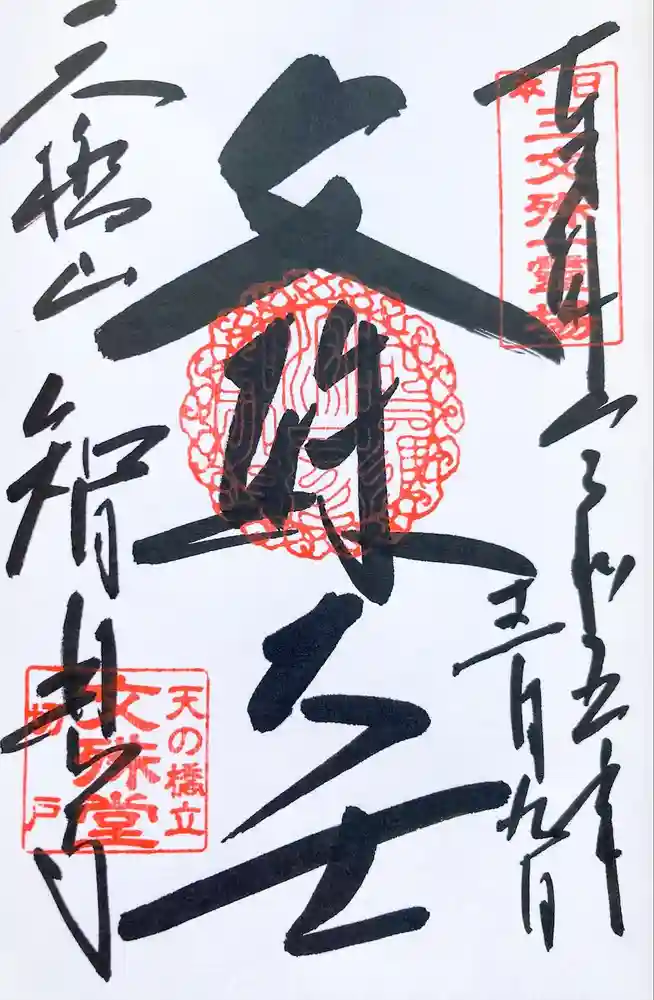 日本
三文殊一霊場
令和五年
十二月九日
文殊大士
天橋山
智恩寺
天の橋立
文殊堂
切戸